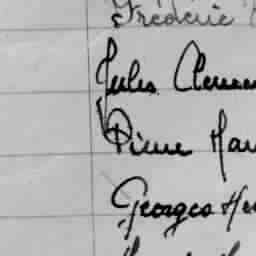 Frédéric
Jules Clemen
Pierre Hau
Georges Hen